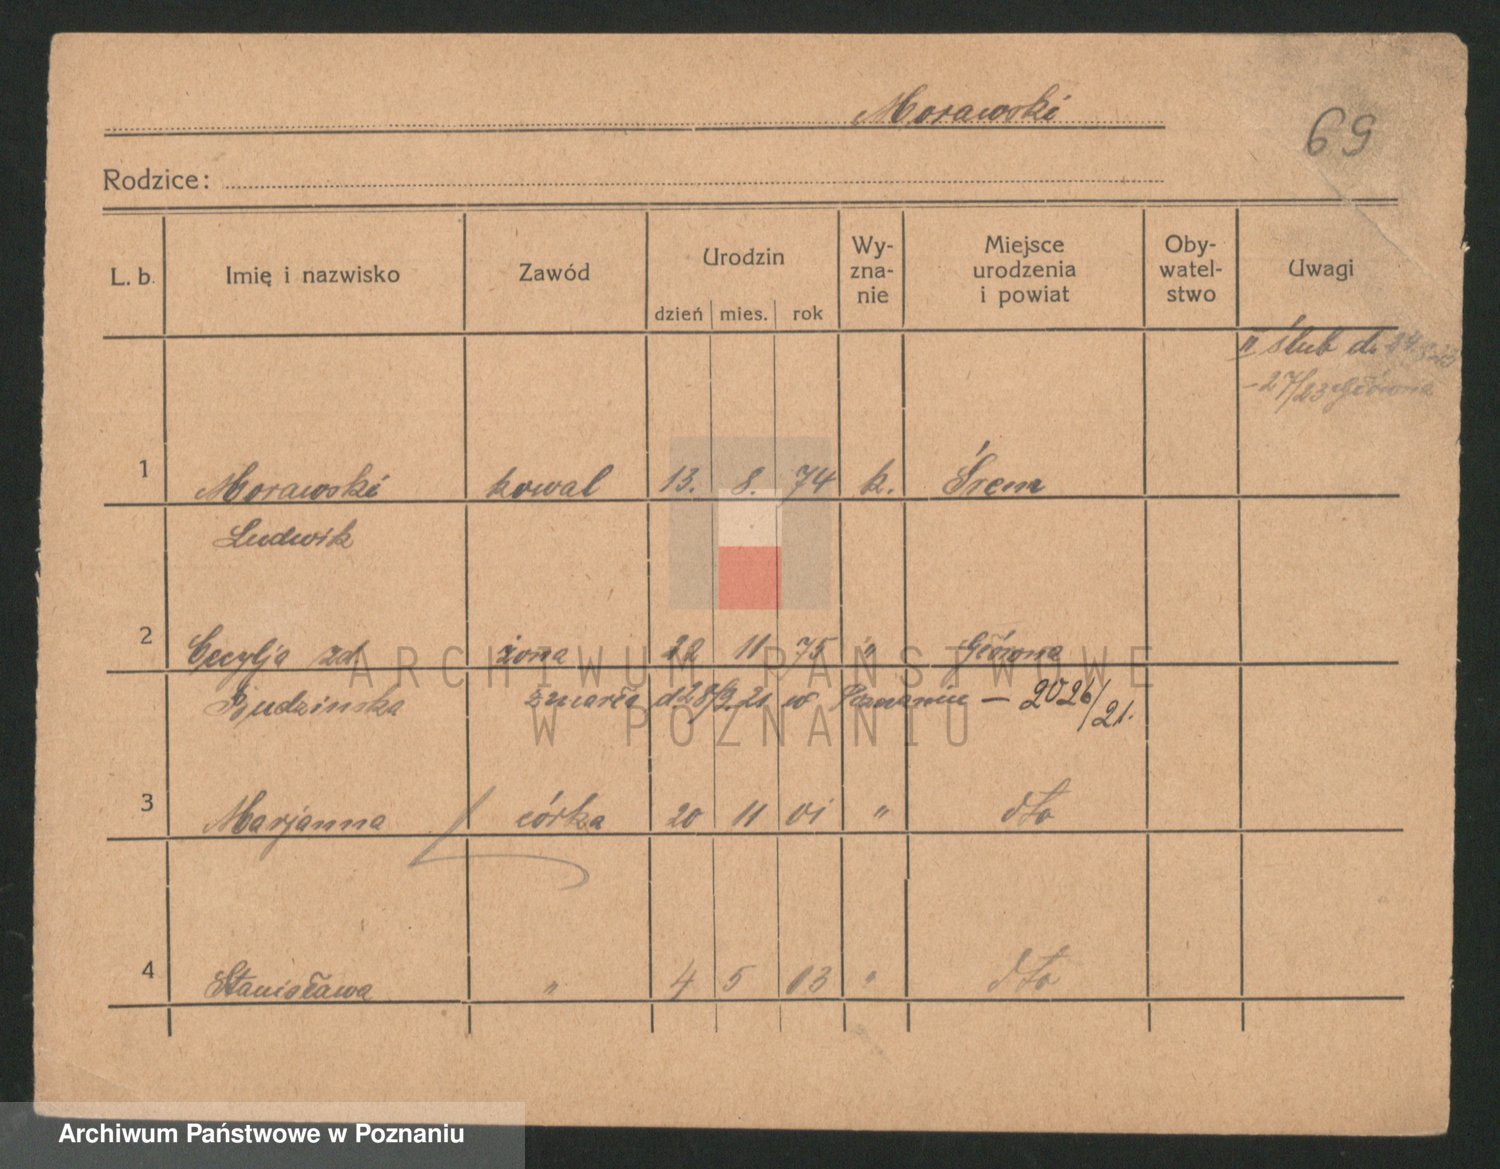 Morawski
69
Rodzice:
L. b. Imię i nazwisko Zawód Urodzin Wy- Miejsce Oby- Uwagi
zna- urodzenia watel-
nie i powiat stwo
dzień mies. rok
II ślub d.
-27/23 Główna
1 Morawski kowal 13. 8. 74 k. Śrem
Ludwik
2 Cecylja zd. żona 22 11 75 " Główna
Rudzinska zmarła d 28/9.21 w Poznaniu — 2026/21.
3 Marjanna córka 20 11 01 " dto
4 Stanisława " 4 5 03 " dto
ARCHIWUM PAŃSTWOWE
W POZNANIU
Archiwum Państwowe w Poznaniu